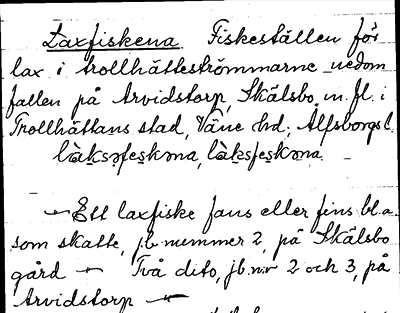 Laxfiskena Fiskeställen för
lax i trollhätteströmmarne nedom
fallen på Arvidstorp, Skälsbo m. fl. i
Trollhättans stad, Väne hd; Älfsborgs l.
làksəfeskəna, làksfeskəna.
— Ett laxfiske fans eller fins bl. a.
som skatte, jb. nummer 2, på Skälsbo
gård — Två dito, jb. n:r 2 och 3, på
Arvidstorp —